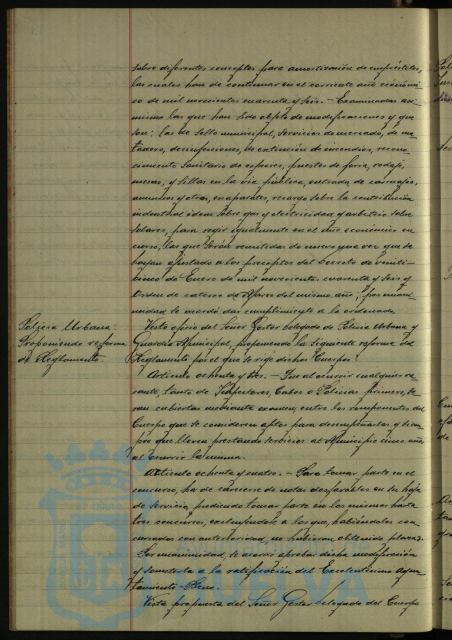 sobre diferentes conceptos para amortización de empréstitos,
las cuales han de continuar en el corriente año económi-
co de mil novecientos cuarenta y seis.- Examinadas asi-
mismo las que han sido objeto de modificaciones y que
son: las de sello municipal, servicios de mercado, de ma-
tadero, desinfecciones, de extinción de incendios, recono-
cimiento sanitario de espores, puestos de feria, rodaje,
mesas y sillas en la vía pública, entrada de carruajes,
anuncios y otras, escaparates, recargo sobre la contribución
industrial idem sobre gas y electricidad y arbitrio sobre
solares, para regir igualmente en el año económico en
curso, las que serán remitidas de nuevo una vez que se
hayan ajustado a los preceptos del Decreto de veinti-
cinco de Enero de mil novecientos cuarenta y seis y
Orden de catorce de Marzo del mismo año; por unani-
midad se acordó dar cumplimiento a lo ordenado.
Policia Urbana.
Proponiendo reforma
de Reglamento.
Visto oficio del Señor Gestor delegado de Policía Urbana y
Guardia Municipal, proponiendo la siguiente reforma del
Reglamento por el que se rige dicho Cuerpo:
Artículo ochenta y tres.- Que al ocurrir cualquier va-
cante, tanto de Inspectores, Cabos o Policías primeros, se-
rán cubiertas mediante examen, entre los componentes del
Cuerpo que se consideren aptos para desempeñarlas y siem-
pre que lleven prestando servicios al Municipio cinco años
al ocurrir la misma.
Artículo ochenta y cuatro.- Para tomar parte en el
concurso, ha de carecerse de notas desfavorables en su hoja
de servicio, pudiendo tomar parte en los mismos hasta
tres concursos, excluyéndose a los que, habiéndolos con-
cursados con anterioridad, no hubieran obtenido plaza.
Por unanimidad, se acordó aprobar dicha modificación
y someterla a la ratificación del Excelentísimo Ayun-
tamiento-Pleno.
Vista propuesta del Señor Gestor delegado del Cuerpo